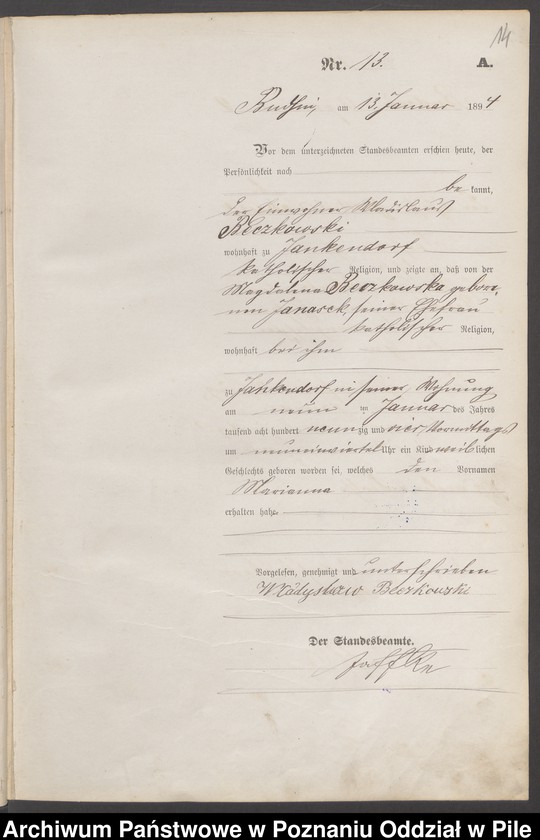 14
Nr. 13. A.
Budsin, am 13. Januar 1894
Vor dem unterzeichneten Standesbeamten erschien heute, der
Persönlichkeit nach
be kannt,
der Einwohner Wladislaus
Beczkowski
wohnhaft zu Jankendorf
katholischer Religion, und zeigte an, daß von der
Magdalena Beczkowska, gebore-
nen Janasek, seiner Ehefrau
katholischer Religion,
wohnhaft bei ihm
zu Jankendorf in seiner Wohnung
am neun im Januar des Jahres
tausend acht hundert neunzig und vier, Vormittags
um Uhr ein Kind weiblichen
Geschlechts geboren worden sei, welches den Vornamen
Marianna
erhalten habe.
Vorgelesen, genehmigt und unterschrieben
Władysław Beczkowski
Der Standesbeamte.
Jaffke
Archiwum Państwowe w Poznaniu Oddział w Pile